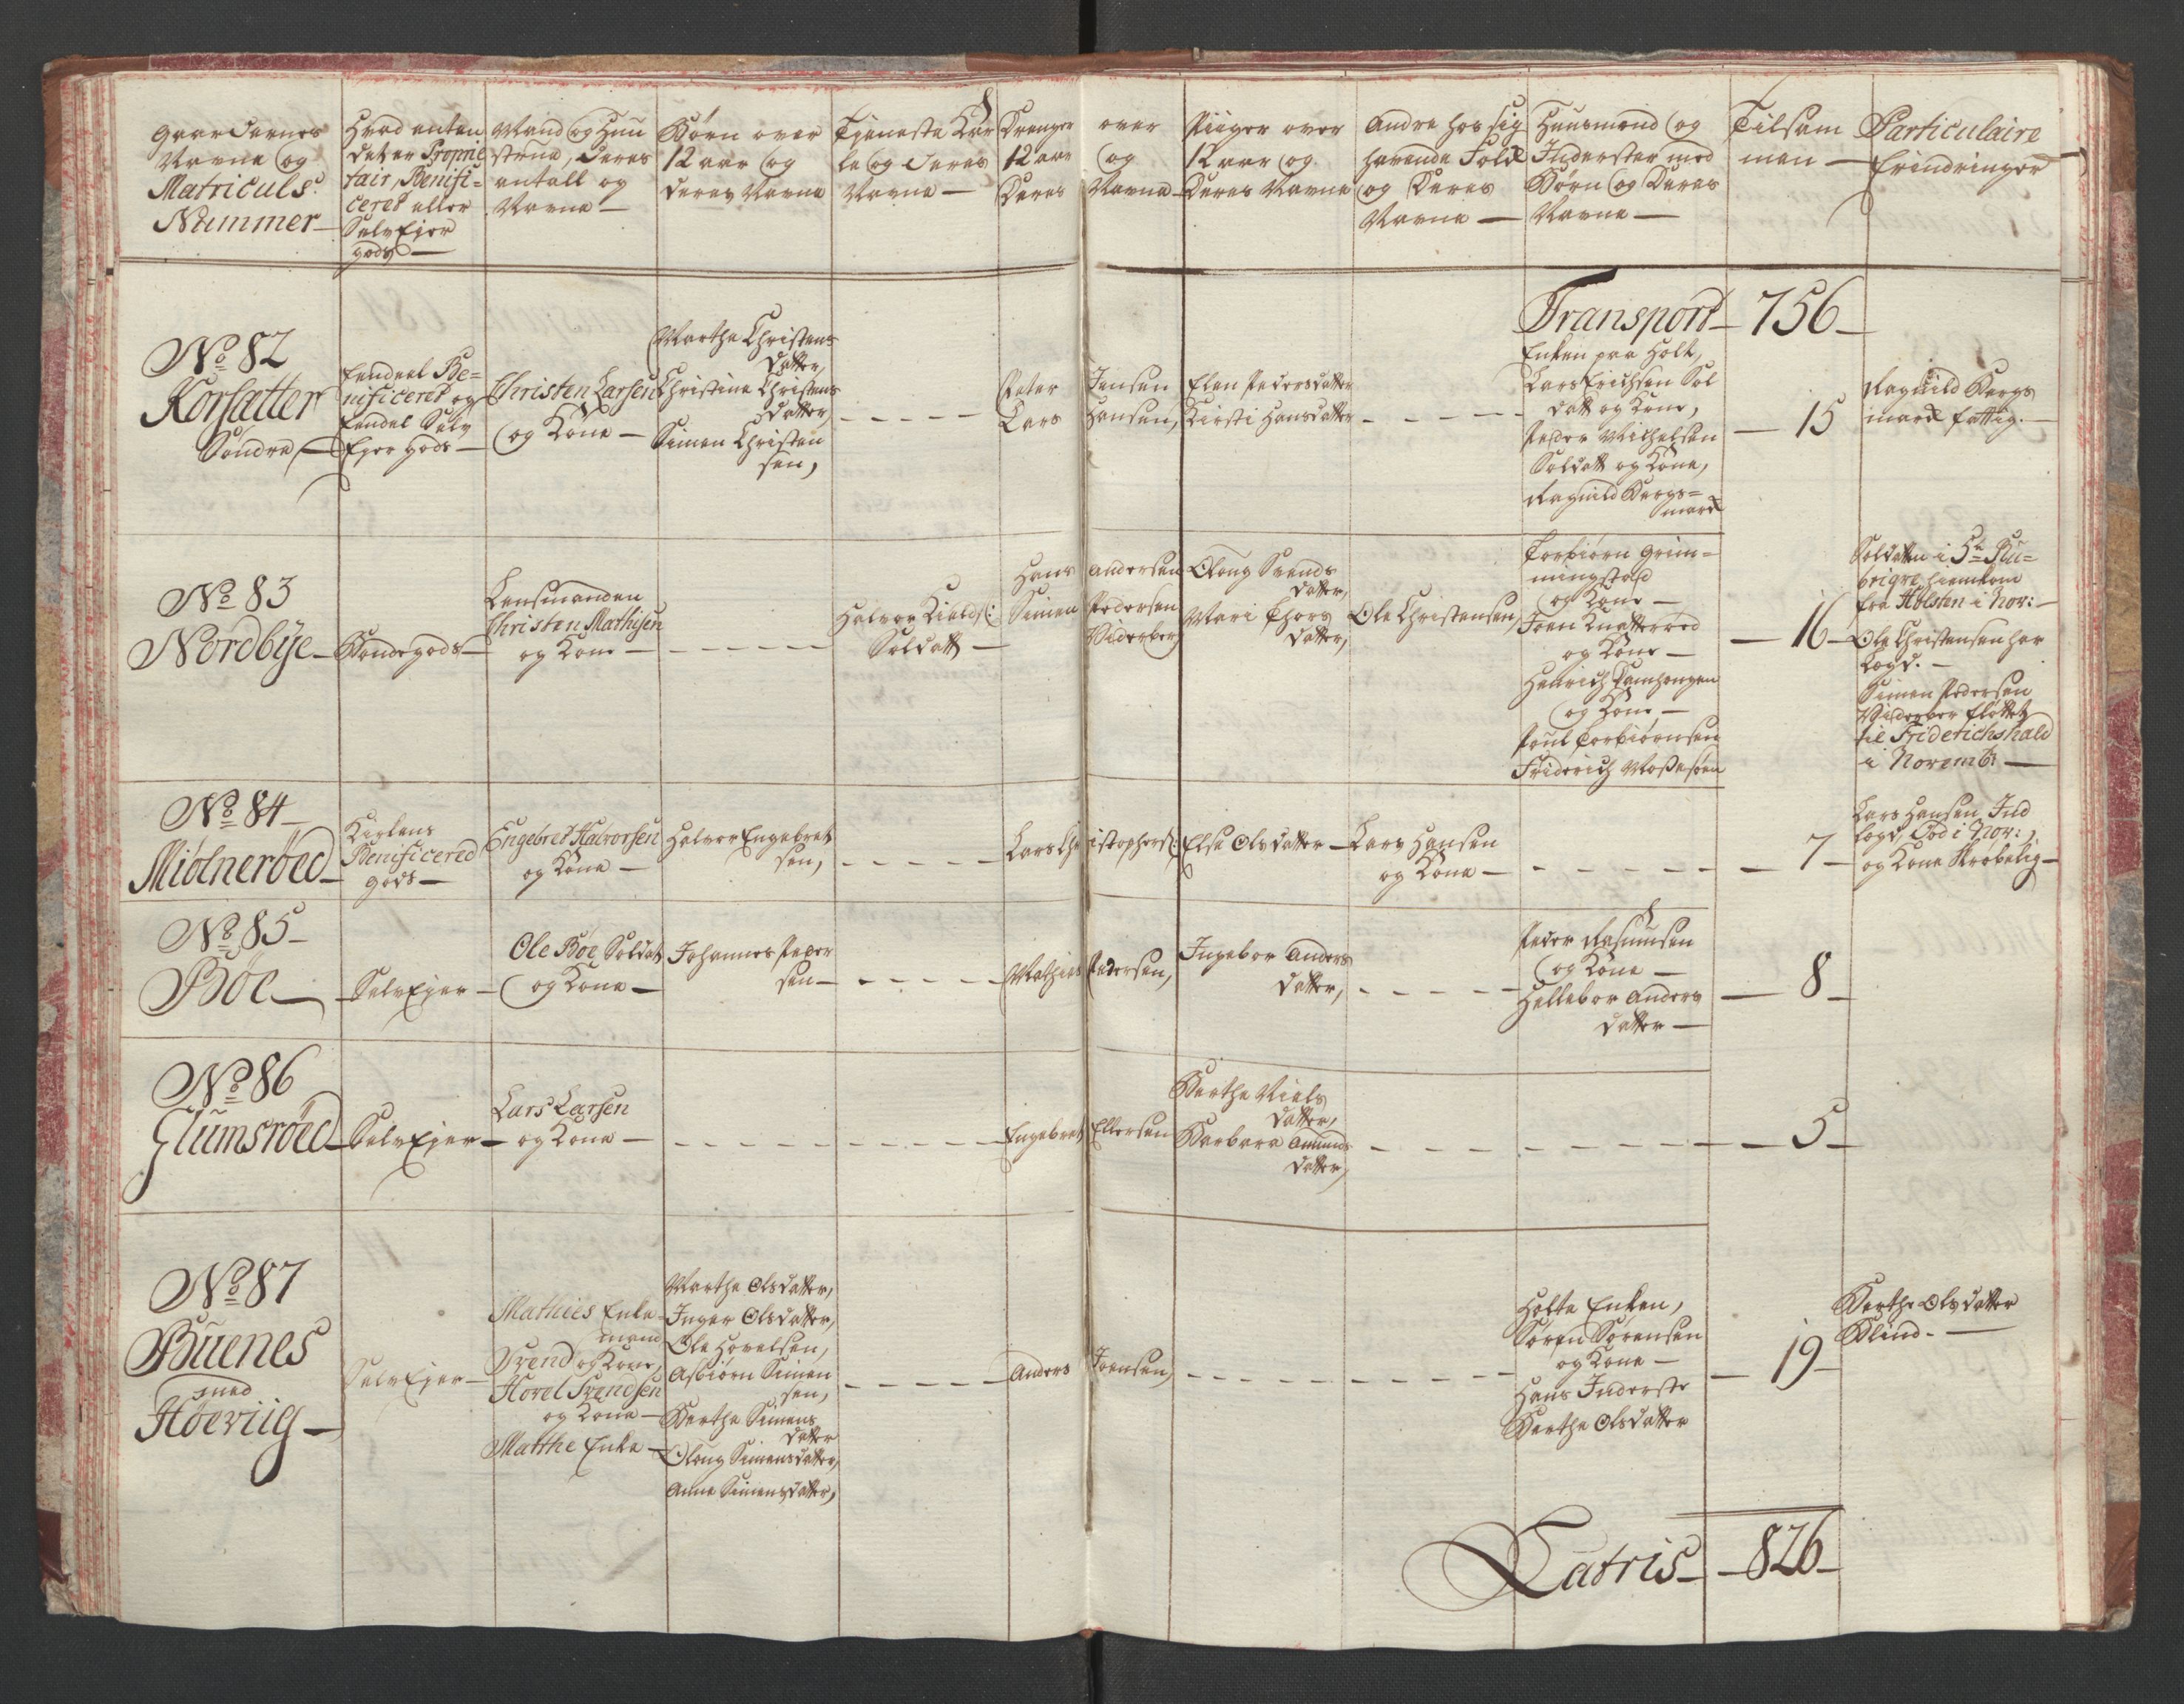 Gaardernes
Navne og
Matriculs
Nummer
Hvad enten
det er Proprie
tair, Benifi-
ceret eller
SelvEjer
gods
Mand og Huu
strue, deres
antall og
Navne
Børn over
12 aar og
deres Navne
Tjeneste Kar
le og deres
Navne
Drenger over
12 aar og
Deres Navne
Piiger over
12 aar og
deres Navne
Andre hos sig
havende Folk
og deres
Navne
Huusmend og
Inderster med
Børn og deres
Navne
Tilsam
men
Particulaire
Erindringer
Transport 756
No 82
Korsætter
Søndre
Eendeel Be-
nificeret og
Eendel Selv
Ejer gods
Christen Larsen
og Kone
Marthe Christens
datter,
Christine Christens
datter,
Simen Christen
sen,
Peter Jensen
Lars Hansen,
Elen Pedersdatter
Kirsti Hansdatter
Enken paa Holt,
Lars Erichsen Sol
dat og Kone,
Peder Michelsen
Soldatt og Kone,
Ragnild Bergs-
mark
15
Ragnild Bergs
mark fattig.
No 83
Nordbÿe
Bondegods
Lensmanden
Christen Mathisen
og Kone
Halvor Kields:
Soldatt
Hans Andersen
Simen Pedersen
Viderber
Oloug Svends
datter,
Mari Thors
datter,
Ole Christensen,
Torbiørn Grim-
mingstad
og Kone
Joen Knatterød
og Kone
Henrich Damhougen
og Kone
Poul Torbiørnsen
Friderich Mossesøen
16
Soldatten i 5te Ru-
brique hiemkom
fra Holsten i Nov:
Ole Christensen har
Logd.
Simen Pedersen
Viderber fløttet
til Friderichshald
i Novemb:
No 84
Miølnerøed
Kirkens
Benificered
gods
Engebret Halvorsen
og Kone
Halvor Engebret
sen,
Lars Christophers:
Else Olsdatter
Lars Hansen
og Kone
7
Lars Hansen Ind
logd, død i Nov:,
og Kone Skrøbelig
No 85
Bøe
SelvEjer
Ole Bøe Soldat
og Kone
Johannes Peder
sen
Mathias Pedersen,
Ingebor Anders
datter,
Peder Rasmusen
og Kone
Hellebor Anders
datter
8
No 86
Glumsrøed
SelvEjer
Lars Larsen
og Kone
Engebret Ellersen
Berthe Niels
datter,
Barbara Amunds
datter,
5
No 87
Buenes
med
Høeviig
SelvEjer
Mathies Enke-
mand
Svend og Kone,
Hovel Svendsen
og Kone
Marthe Enke
Marthe Olsdatter,
Inger Olsdatter,
Ole Hovelsen,
Asbiørn Simen
sen,
Berthe Simens
datter
Oloug Simensdatter,
Anne Simensdatter,
Anders Joensen,
Holte Enken,
Søren Sørensen
og Kone
Hans Inderste
Berthe Olsdatter
19
Berthe Olsdatter
Blind.
Latris 826